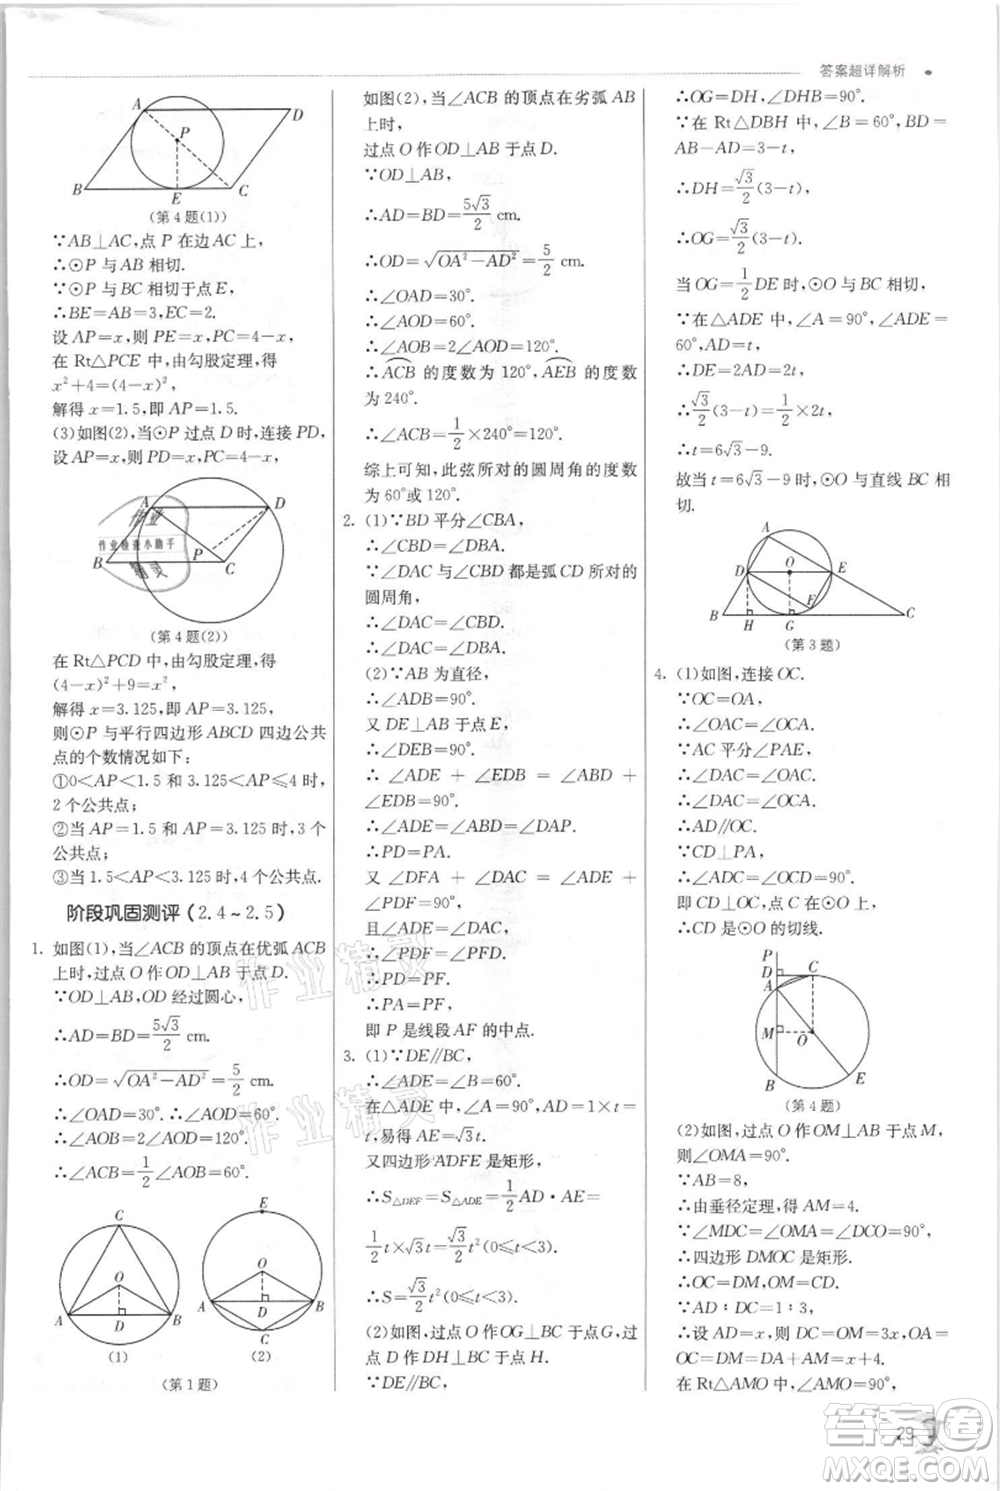 答案超详解析
A
D
P
B
E
C
(第4题(1))
∵AB⊥AC,点 P 在边AC 上,
∴⊙P 与 AB 相切.
∵⊙P 与 BC 相切于点 E,
∴BE=AB=3,EC=2.
设 AP=x,则 PE=x,PC=4-x,
在 Rt△PCE 中,由勾股定理,得
x²+4=(4-x)²,
解得 x=1.5,即 AP=1.5.
(3)如图(2),当⊙P 过点 D 时,连接 PD,
设 AP=x,则 PC=4-x,
A
D
P
B
C
作业
作业检查小助手
精灵
(第4题(2))
在 Rt△PCD 中,由勾股定理,得
(4-x)²+9=x²,
解得 x=3.125,即 AP=3.125,
则⊙P 与平行四边形 ABCD 四边公共
点的个数情况如下:
①0<AP<1.5 和 3.125<AP≤4 时,
2 个公共点;
②当 AP=1.5 和 AP=3.125 时,3 个
公共点;
③当 1.5<AP<3.125 时,4 个公共点.
阶段巩固测评(2.4~2.5)
1. 如图(1),当∠ACB 的顶点在优弧 ACB
上时,过点 O 作 OD⊥AB 于点 D.
∵OD⊥AB,OD 经过圆心,
∴AD=BD=5√3/2 cm.
∴OD=√(OA²-AD²)=5/2 cm.
∴∠OAD=30°. ∴∠AOD=60°.
∴∠AOB=2∠AOD=120°.
∴∠ACB=1/2∠AOB=60°.
C
O
A
D
B
(1)
E
O
A
D
B
C
(2)
(第1题)
如图(2),当∠ACB 的顶点在劣弧 AB
上时,
过点 O 作OD⊥AB 于点 D.
∵OD⊥AB,
∴AD=BD=5√3/2 cm.
∴OD=√(OA²-AD²)=5/2 cm.
∴∠OAD=30°.
∴∠AOD=60°.
∴∠AOB=2∠AOD=120°.
∴ACB 的度数为 120°,AEB 的度数
为 240°.
∴∠ACB=1/2×240°=120°.
综上可知,此弦所对的圆周角的度数
为 60°或 120°.
2. (1)∵BD 平分∠CBA,
∴∠CBD=∠DBA.
∵∠DAC 与∠CBD 都是弧CD 所对的
圆周角,
∴∠DAC=∠CBD.
∴∠DAC=∠DBA.
(2)∵AB 为直径,
∴∠ADB=90°.
又 DE⊥AB 于点 E,
∴∠DEB=90°.
∴∠ADE + ∠EDB = ∠ABD +
∠EDB=90°.
∴∠ADE=∠ABD=∠DAP.
∴PD=PA.
又 ∠DFA + ∠DAC = ∠ADE +
∠PDF=90°,
且∠ADE=∠DAC,
∴∠PDF=∠PFD.
∴PD=PF.
∴PA=PF,
即 P 是线段 AF 的中点.
3. (1)∵DE∥BC,
∴∠ADE=∠B=60°.
在△ADE 中,∠A=90°,AD=1×t=
t,易得 AE=√3t.
又四边形ADFE 是矩形,
∴S△DEF=S△ADE=1/2AD·AE=1/2
t×√3t=√3/2t²(0≤t<3).
∴S=√3/2t²(0≤t<3).
(2)如图,过点O 作OG⊥BC 于点G,过
点 D 作 DH⊥BC 于点 H.
∵DE∥BC,
∴OG=DH,∠DHB=90°.
∵在 Rt△DBH 中,∠B=60°,BD=
AB-AD=3-t,
∴DH=√3/2(3-t),
∴OG=√3/2(3-t).
当 OG=1/2DE 时,⊙O 与 BC 相切,
∵在△ADE 中,∠A=90°,∠ADE=
60°,AD=t,
∴DE=2AD=2t,
∴√3/2(3-t)=1/2×2t,
∴t=6√3-9.
故当 t=6√3-9 时,⊙O 与直线 BC 相
切.
A
D
O
E
F
B
H
G
C
(第3题)
4. (1)如图,连接OC.
∵OC=OA,
∴∠OAC=∠OCA.
∵AC 平分∠PAE,
∴∠DAC=∠OAC.
∴∠DAC=∠OCA.
∴AD∥OC.
∵CD⊥PA,
∴∠ADC=∠OCD=90°,
即 CD⊥OC,点 C 在⊙O 上.
∴CD 是⊙O 的切线.
P
D
C
A
M
O
B
E
(第4题)
(2)如图,过点 O 作 OM⊥AB 于点 M,
则∠OMA=90°.
∵AB=8,
∴由垂径定理,得 AM=4.
∵∠MDC=∠OMA=∠DCO=90°,
∴四边形 DMOC 是矩形.
∴OC=DM,OM=CD.
∵AD∶DC=1∶3,
∴设 AD=x,则 DC=OM=3x,OA=
OC=DM=DA+AM=x+4.
∵在 Rt△AMO 中,∠AMO=90°,
作业精灵
作业精灵
29
答案圈
MXQE.COM